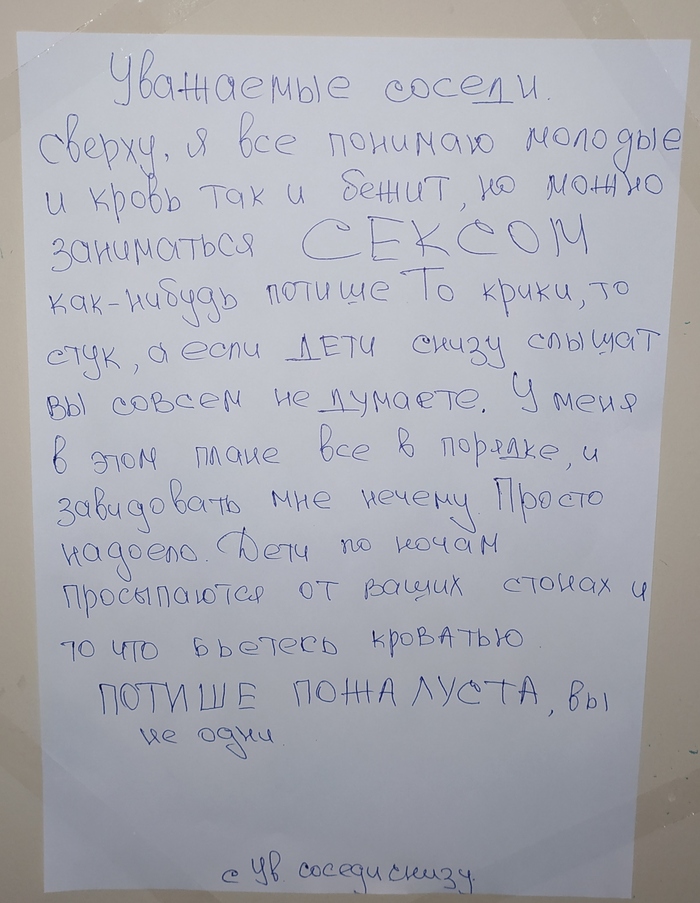 Уважаемые соседи.
сверху, я все понимаю молодые
и кровь так и бежит, но можно
заниматься СЕКСОМ
как-нибудь потише То крики, то
стук, а если ДЕТИ снизу слышат
вы совсем не думаете. У меня
в этом плане все в порядке, и
завидовать мне нечему. Просто
надоело. Дети по ночам
просыпаются от ваших стонах и
то что бьетесь кроватью
ПОТИШЕ ПОЖАЛУСТА, вы
не одни.
с Ув. соседи снизу.